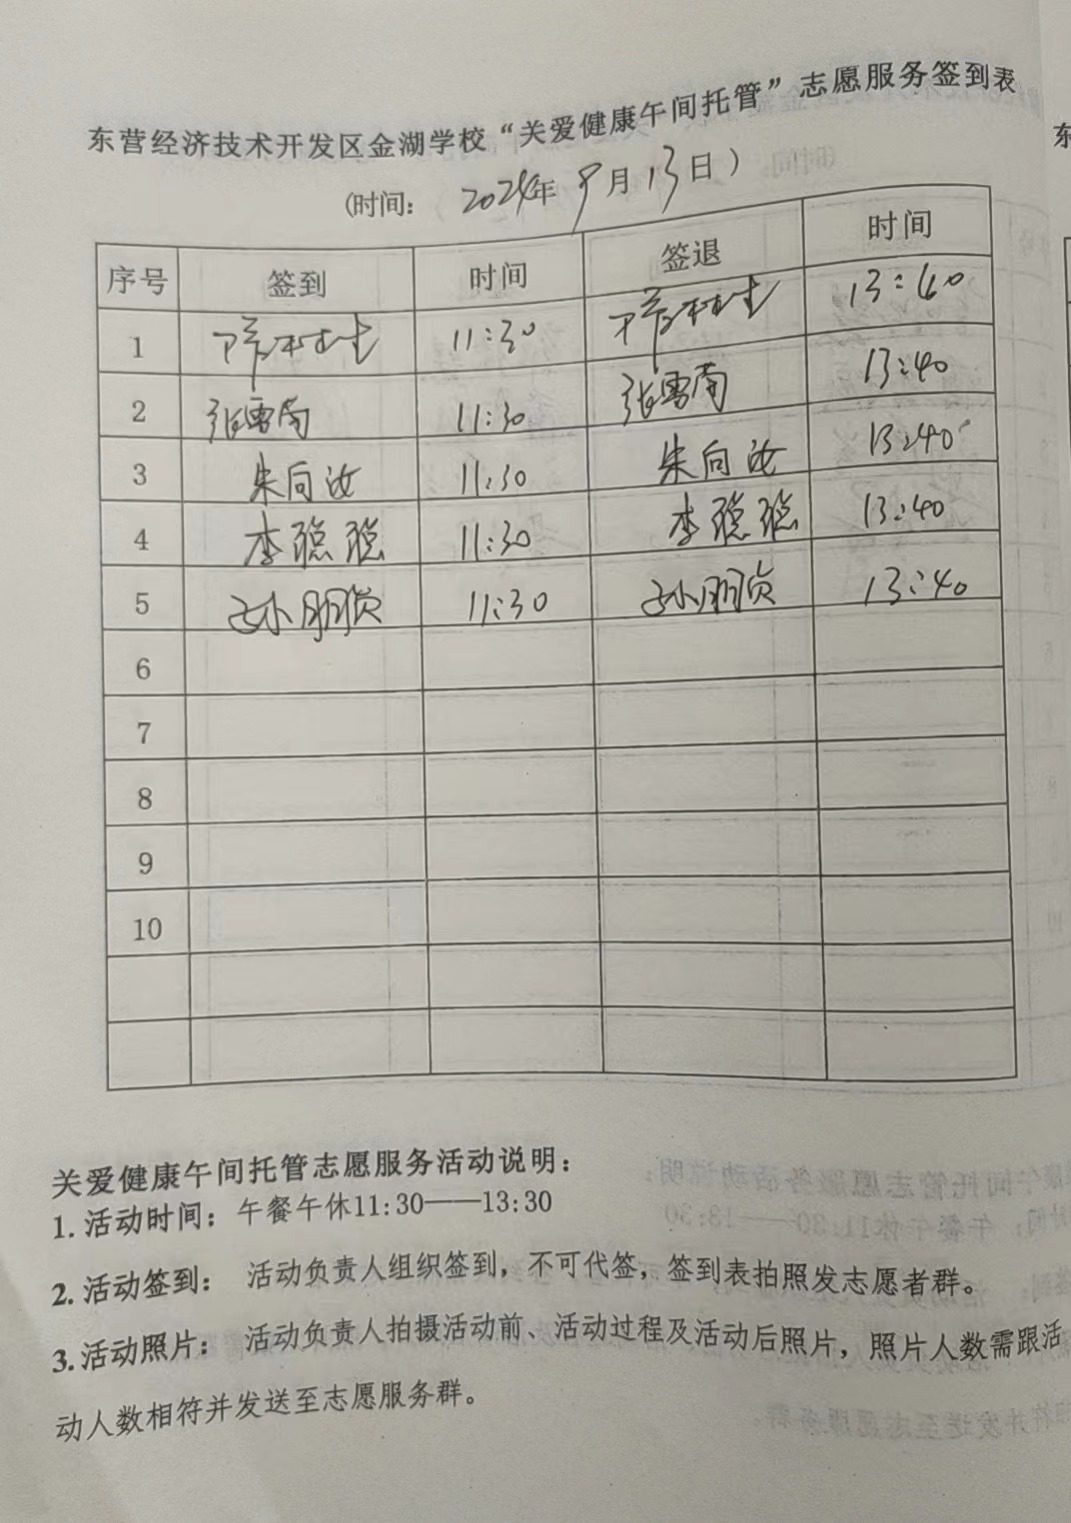 东营经济技术开发区金湖学校“关爱健康午间托管”志愿服务签到表
(时间： 2024年9月13日）
序号 签到 时间 签退 时间
1 11:30 13:40
2 张雪南 11:30 张雪南 13:40
3 朱向汝 11:30 朱向汝 13:40
4 李聪聪 11:30 李聪聪 13:40
5 孙朋贞 11:30 孙朋贞 13:40
6
7
8
9
10
关爱健康午间托管志愿服务活动说明：
1. 活动时间：午餐午休11:30——13:30
2. 活动签到： 活动负责人组织签到，不可代签，签到表拍照发志愿者群。
3. 活动照片： 活动负责人拍摄活动前、活动过程及活动后照片，照片人数需跟活
动人数相符并发送至志愿服务群。